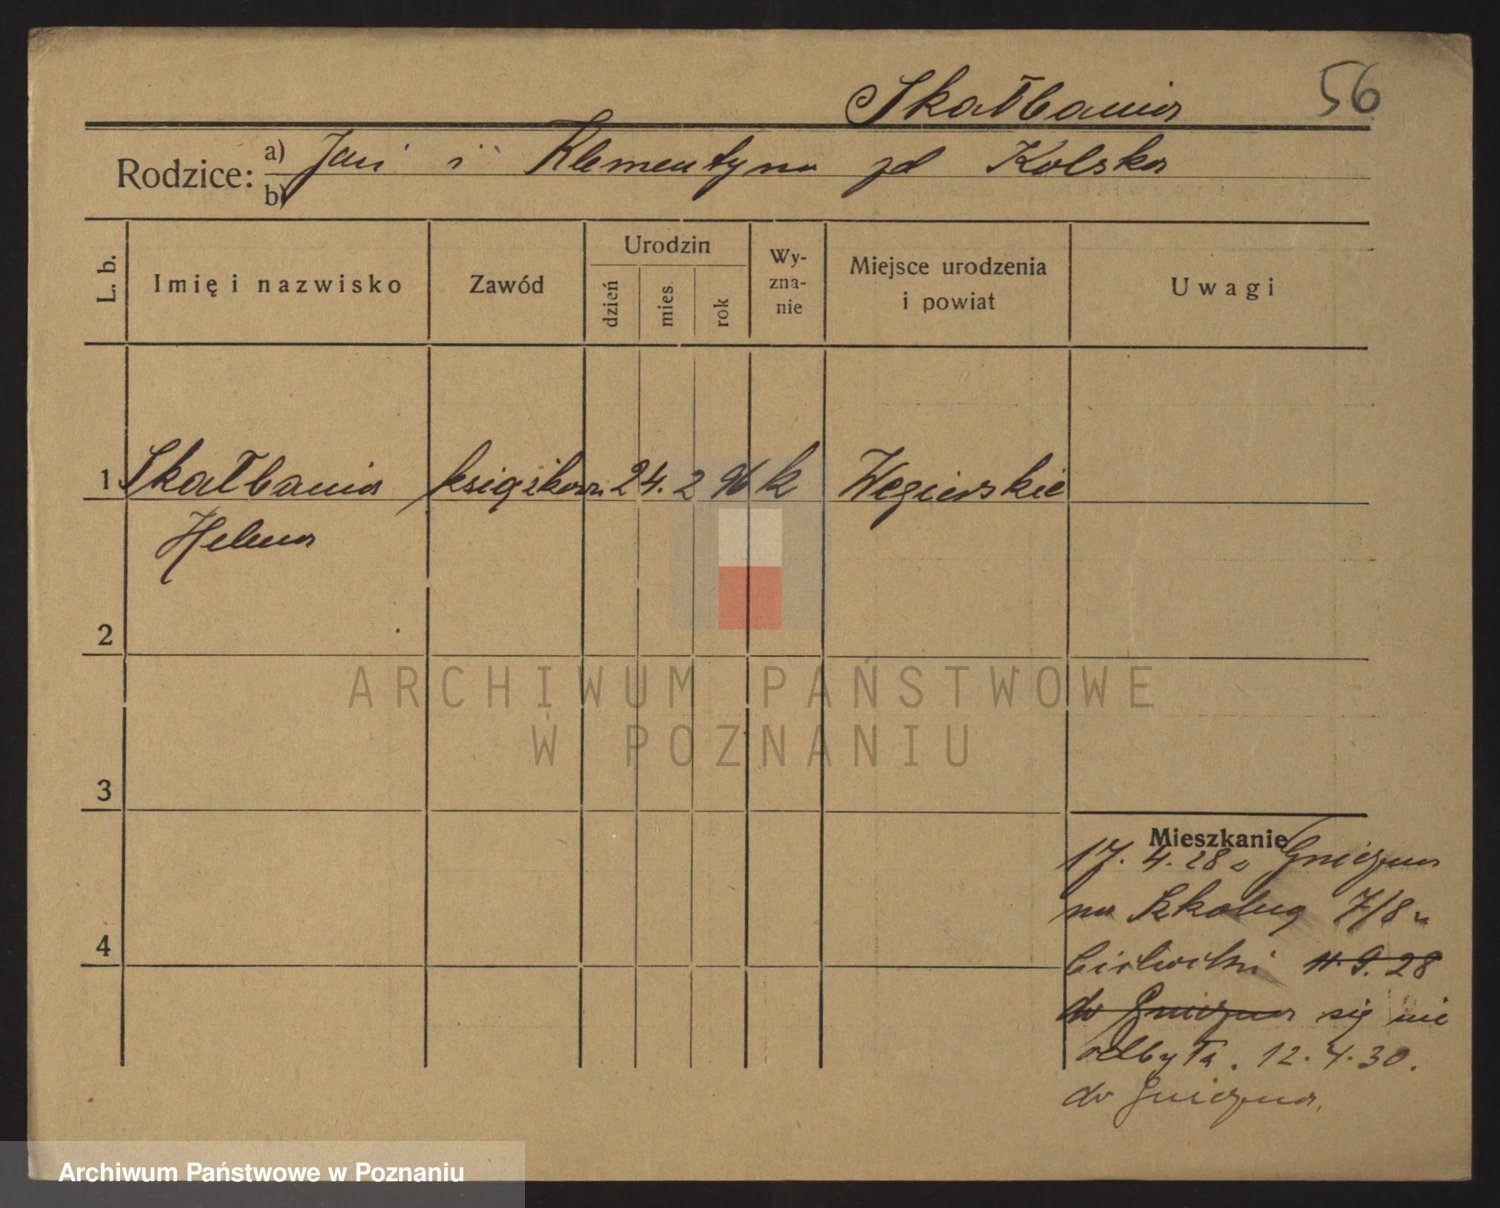 Skałbania 56
Rodzice: a) Jan i Klementyna zd Kolska
b)
L. b. Imię i nazwisko Zawód Urodzin dzień mies rok Wyznanie Miejsce urodzenia i powiat Uwagi
1 Skałbania książkow. 24. 2 96 k Węgierskie
Helena
2
ARCHIWUM PAŃSTWOWE
W POZNANIU
3
Mieszkanie
17. 4. 28 z Gniezna
na Szkolną 7/8 u
11. 9. 28
do Gniezna się nie
odbyła. 12.4.30.
do Gniezna.
4
Archiwum Państwowe w Poznaniu